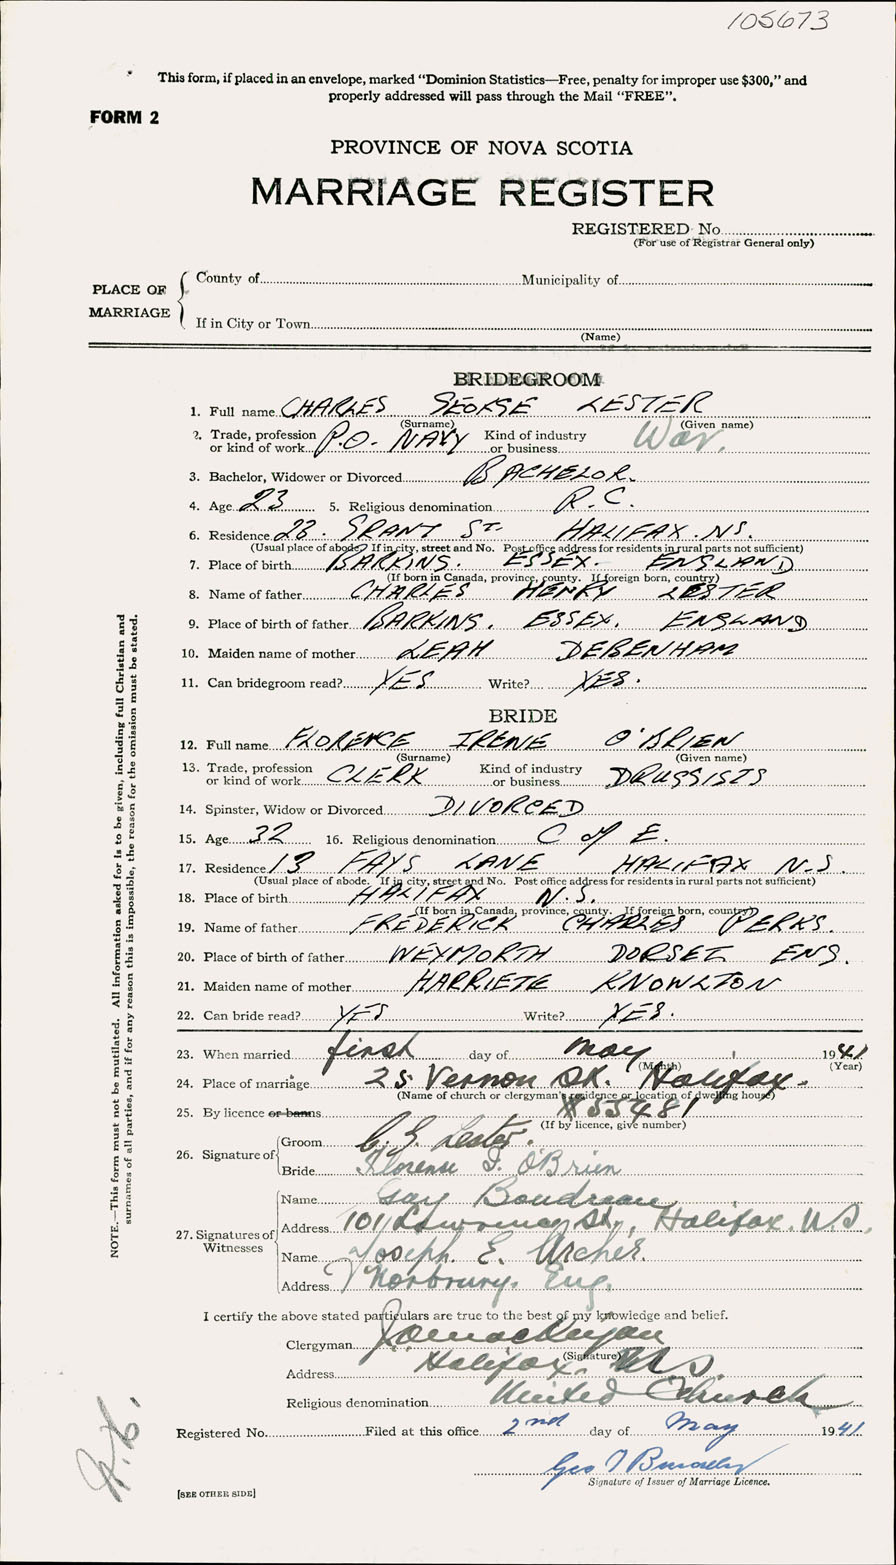 105673
This form, if placed in an envelope, marked “Dominion Statistics—Free, penalty for improper use $300,” and
properly addressed will pass through the Mail “FREE”.
FORM 2
PROVINCE OF NOVA SCOTIA
MARRIAGE REGISTER
REGISTERED No.
(For use of Registrar General only)
PLACE OF MARRIAGE
County of Municipality of
If in City or Town
(Name)
BRIDEGROOM
1. Full name CHARLES GEORGE LESTER
(Surname) (Given name)
2. Trade, profession or kind of work P.O. NAVY Kind of industry or business War.
3. Bachelor, Widower or Divorced BACHELOR.
4. Age 23 5. Religious denomination R.C.
6. Residence 23. GRANT ST. HALIFAX. NS.
(Usual place of abode. If in city, street and No. Post office address for residents in rural parts not sufficient)
7. Place of birth BARKING. ESSEX. ENGLAND
(If born in Canada, province, county. If foreign born, country)
8. Name of father CHARLES HENRY LESTER
9. Place of birth of father BARKING. ESSEX. ENGLAND
10. Maiden name of mother LEAH DEBENHAM
11. Can bridegroom read? YES Write? YES.
BRIDE
12. Full name FLORENCE IRENE O'BRIEN
(Surname) (Given name)
13. Trade, profession or kind of work CLERK Kind of industry or business DRUGGISTS
14. Spinster, Widow or Divorced DIVORCED
15. Age 32 16. Religious denomination C of E.
17. Residence 13 FAYS LANE HALIFAX N.S
(Usual place of abode. If in city, street and No. Post office address for residents in rural parts not sufficient)
18. Place of birth HALIFAX N.S.
(If born in Canada, province, county. If foreign born, country)
19. Name of father FREDERICK CHARLES PERKS.
20. Place of birth of father WEYMORTH DORSET ENG.
21. Maiden name of mother HARRIETE KNOWLTON
22. Can bride read? YES Write? YES.
23. When married first day of May 1941
(Month) (Year)
24. Place of marriage 25 Vernon St. Halifax.
(Name of church or clergyman's residence or location of dwelling house)
25. By licence or banns #53481
(If by licence, give number)
26. Signature of Groom C. G. Lester.
Bride Florence I. O'Brien
27. Signatures of Witnesses
Name Gay Boudreau
Address 101 St., Halifax. N.S.
Name Joseph E. Archer.
Address Norbrury. Eng.
I certify the above stated particulars are true to the best of my knowledge and belief.
Clergyman
(Signature)
Address Halifax. N.S
Religious denomination United Church
Registered No. Filed at this office 2nd day of May 1941
Geo
Signature of Issuer of Marriage Licence.
[SEE OTHER SIDE]
NOTE.—This form must not be mutilated. All information asked for is to be given, including full Christian and
surnames of all parties, and if for any reason this is impossible, the reason for the omission must be stated.